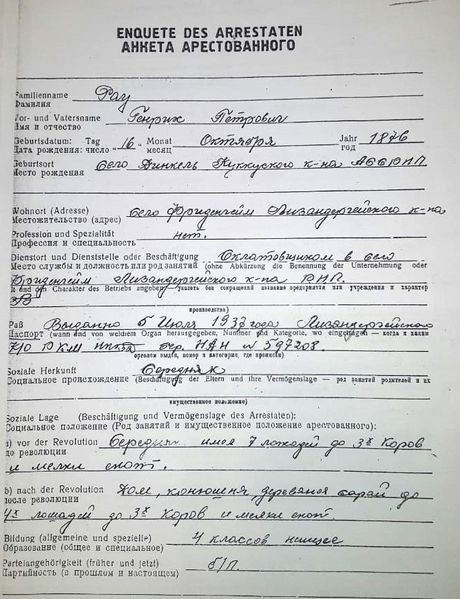 ENQUETE DES ARRESTATEN
АНКЕТА АРЕСТОВАННОГО
Familienname Рау
Фамилия
Vor- und Vatersname Генрих Петрович
Имя и отчество
Geburtsdatum: Tag 16 Monat Октября Jahr 1876
Дата рождения: число месяц год
Geburtsort село Динкель Куккуского к-на АССРНП
Место рождения
Wohnort (Adresse) село Фриденгейм Лизандергейского к-на
Местожительство (адрес)
Profession und Spezialität нет.
Профессия и специальность
Dienstort und Dienststelle oder Beschäftigung в село
Место службы и должность или род занятий (ohne Abkürzung die Benennung der Unternehmung oder
Фриденгейм Лизандергейского к-на
und den Charakter des Betriebs angeben) указать без сокращений название предприятия или учреждения и характер
производства)
Paß Выданно 5 Июля 1937 года Лизандергейского
Паспорт (wann und von welchem Organ herausgegeben, Nummer und Kategorie, wo eingetragen — когда и каким
РКМ сер. № 597208
органом выдан, номер и категория, где прописан)
Soziale Herkunft Середняк
Социальное происхождение (Beschäftigung der Eltern und ihre Vermögenslage — род занятий родителей и их
имущественное положение)
Soziale Lage (Beschäftigung und Vermögenslage des Arrestaten):
Социальное положение (Род занятий и имущественное положение арестованного):
a) vor der Revolution Середняк имея 7 лошадей до 3х Коров
до революции и мелки скот.
b) nach der Revolution Дом, конюшня, деревяная сарай до
после революции
4х лошадей до 3х Коров и мелки скот
Bildung (allgemeine und spezielle) 4 классов
Образование (общее и специальное)
Parteiangehörigkeit (früher und jetzt) б/п.
Партийность (в прошлом и настоящем)